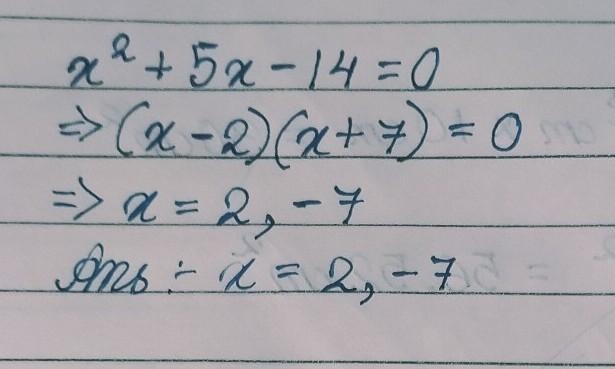 x² + 5x - 14 = 0
⇒ (x - 2)(x + 7) = 0
⇒ x = 2, -7
Ans :- x = 2, -7